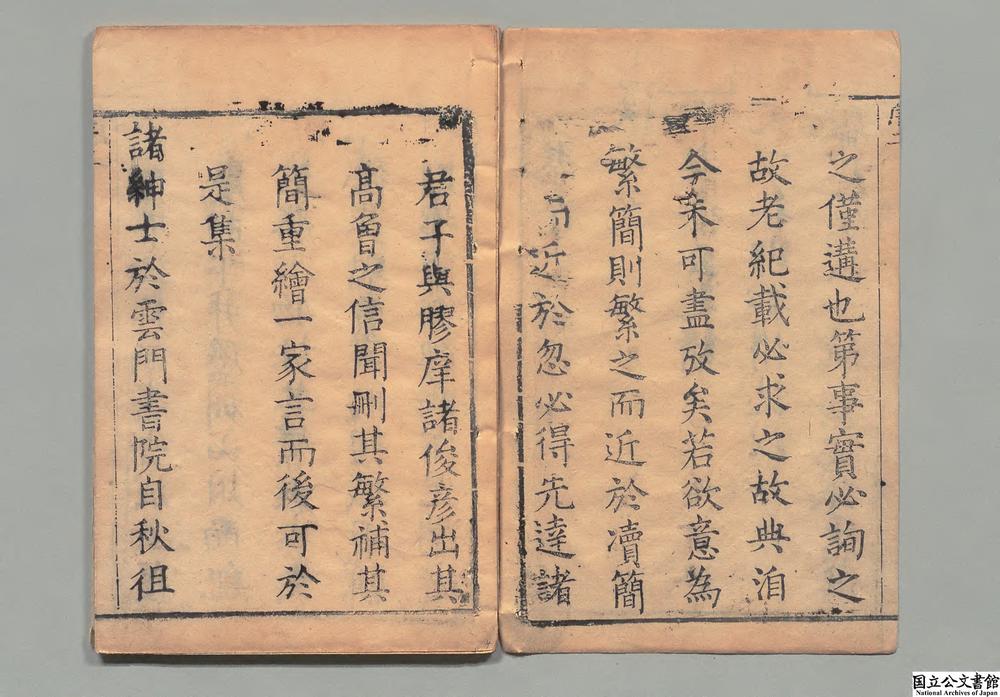 之僅遘也第事實必詢之
故老紀載必求之故典洎
今未可盡攷矣若欲意為
繁簡則繁之而近於凟簡
近於忽必得先達諸
君子與膠庠諸俊彥出其
高曾之信聞刪其繁補其
簡重繪一家言而後可於
是集
諸紳士於雲門書院自秋徂
国立公文書館
National Archives of Japan